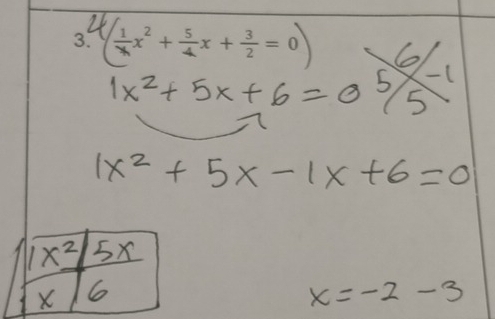 3. 4(1/4 x² + 5/4 x + 3/2 = 0)
1x² + 5x + 6 = 0
6
5 -1
5
1x² + 5x - 1x + 6 = 0
1x² 5x
x 6
x = -2 -3